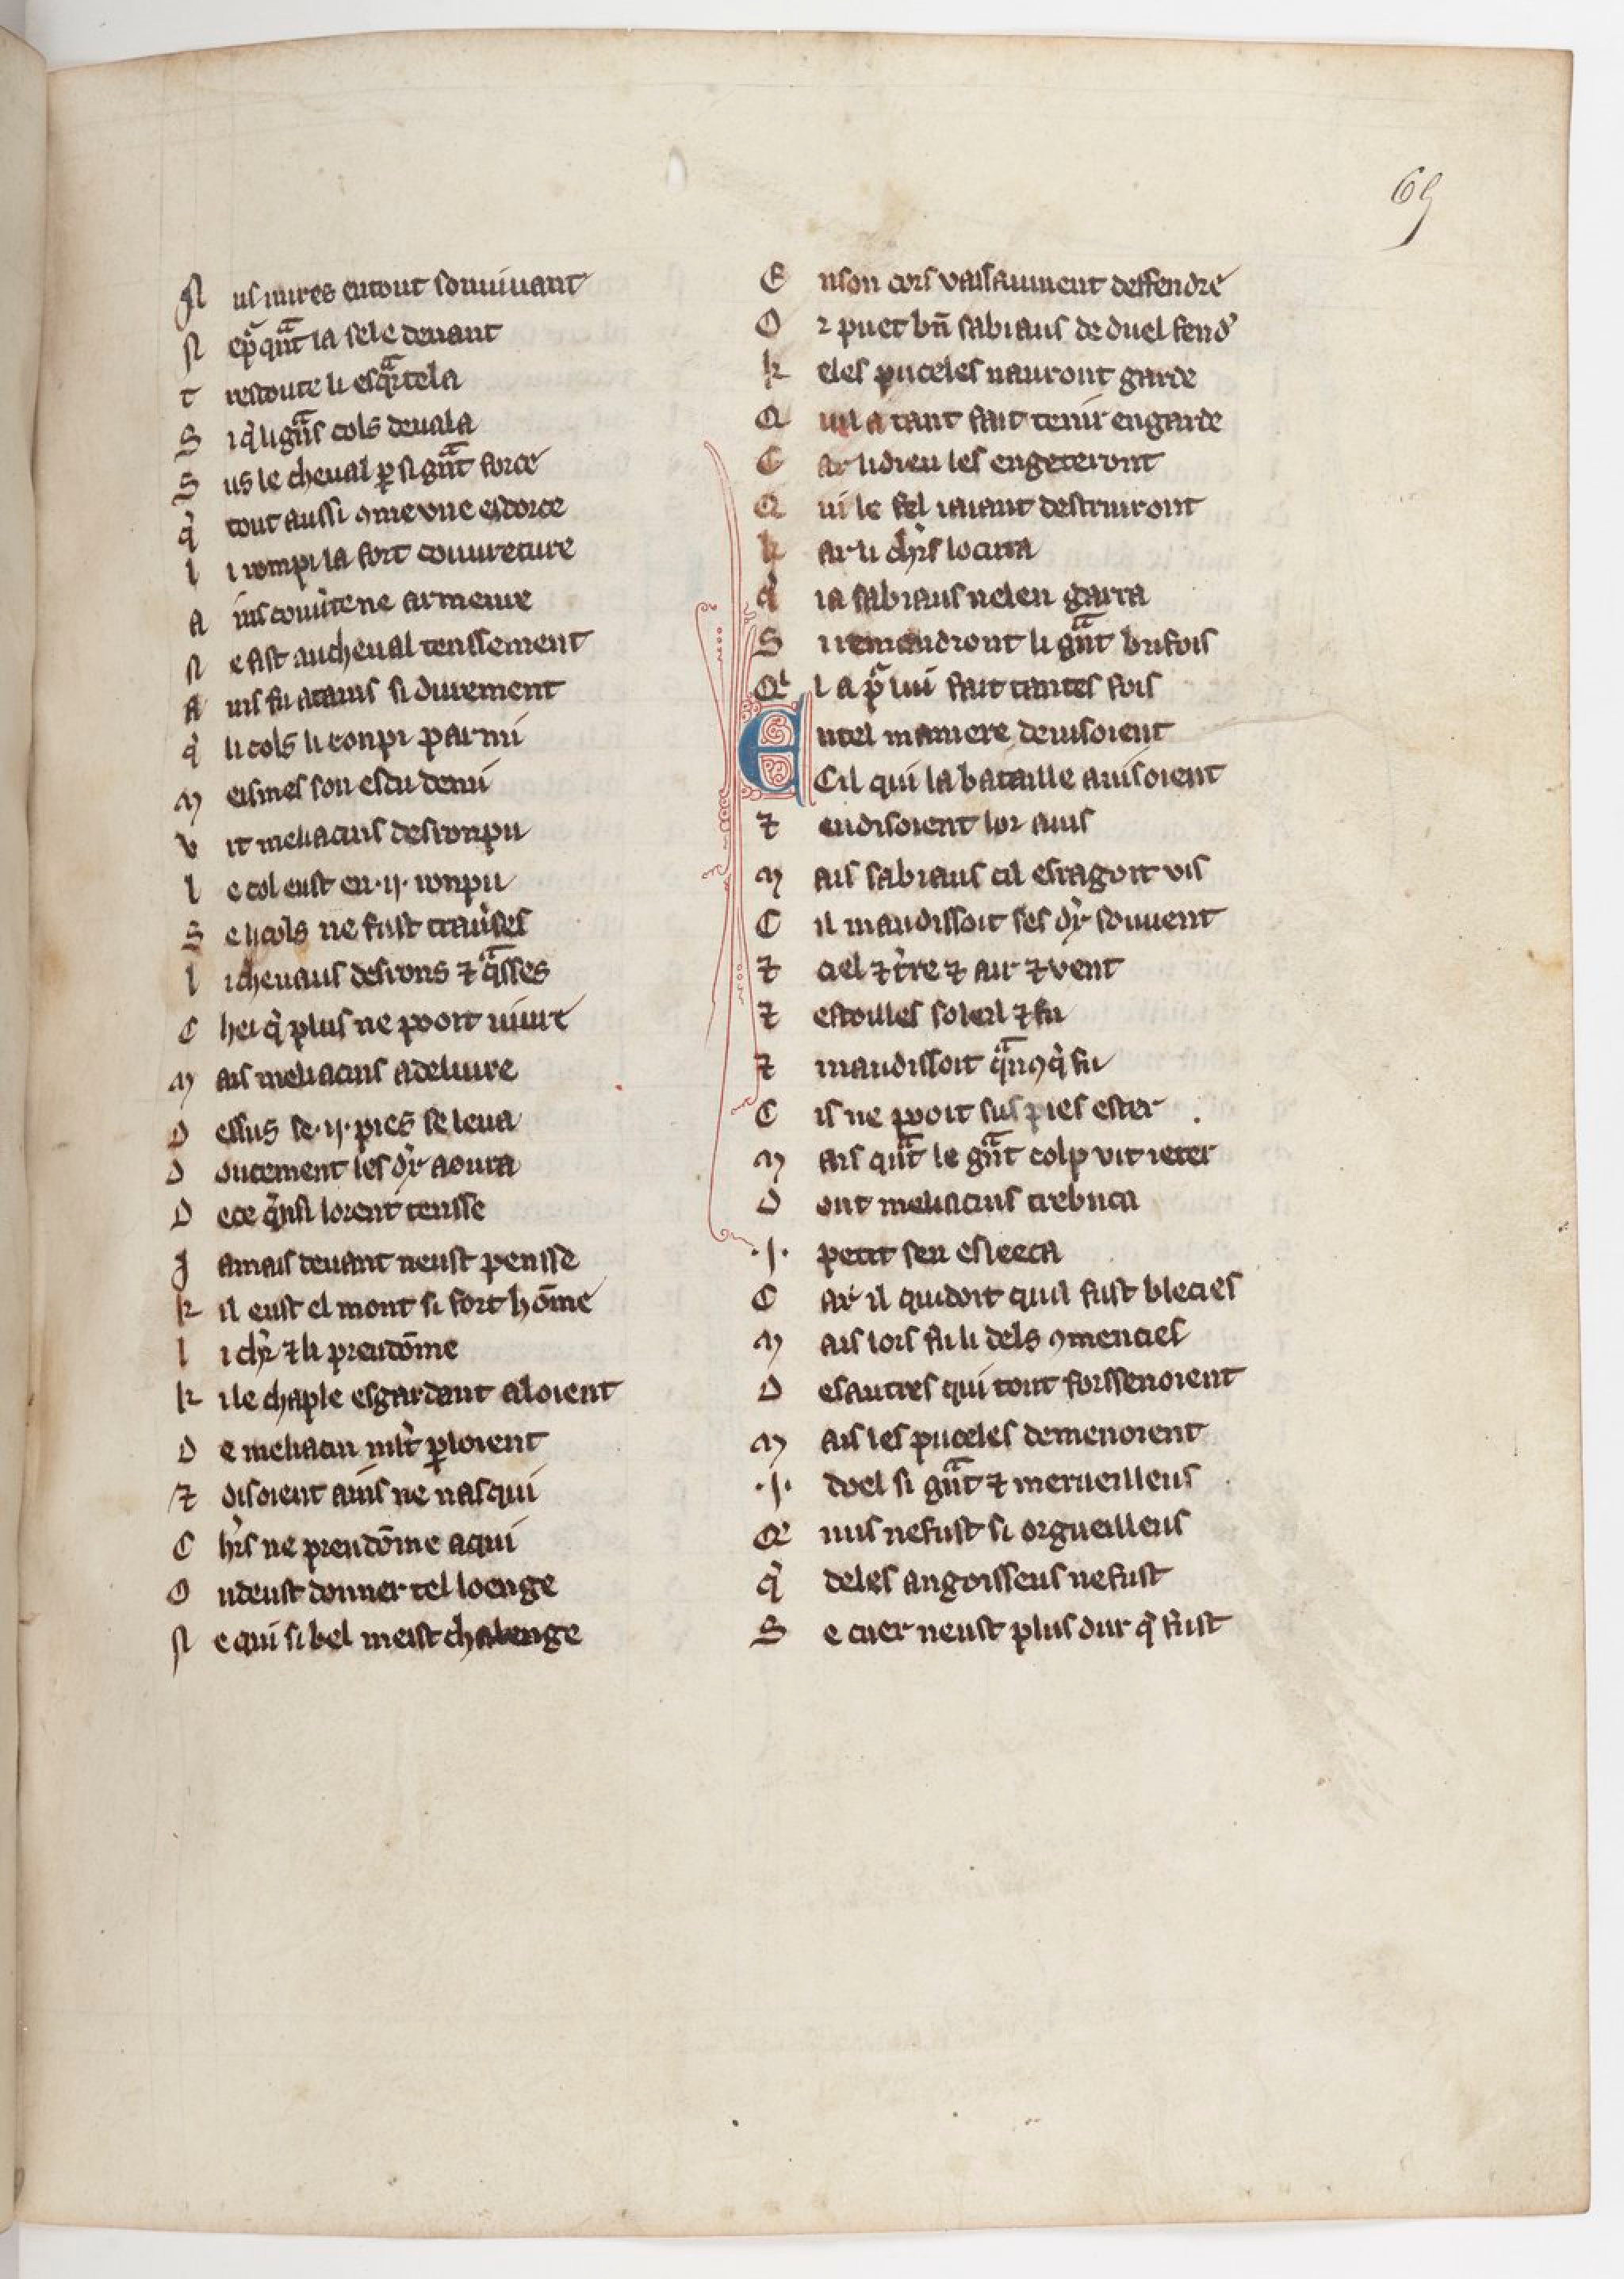 69
N us mires en tout son uiuant
N e pͬ qͣnt la sele deuant
T restoute li esqͣrtela
S i q̾ li gͣns cols deuala
S us le cheual ꝑ si gͣnt force
q̾ tout aussi ꝯme vne escorce
l i rompi la fort couureture
A ins couu̾ture ne armeure
N e fist au cheual tenssement
A ins fu atains si durement
q̾ li cols li ronpi parmi
M eismes son escu demi
V it meliacins desronpu
l e col eust en .ij. ronpu
S e li cols ne fust trau̾ses
l i cheuaus desrons ⁊ qͣsses
C hei q̾ plus ne pooit uiure
M ais meliacins a deliure
D essus se .ij. pies se leua
D oucement les dx̾ aoura
D e ce q̾nsi lorent tensse
J amais deuant neust pensse
K il eust el mont si fort hōme
l i chr̾ ⁊ li preudōme
K i le chaple esgardant aloient
D e meliacin mlt̾ ꝑloient
⁊ disoient ains ne nasqui
C hr̾s ne preudōme a qui
O n deust donner tel loenge
N e qui si bel meist chalenge
E n son cors vaissaument deffendre
O r puet bn̄ sabiaus de duel fend̾
K eles puceles nauront garde
Q uil a tant fait tenir en garde
C ar li dieu les en geteront
Q ui le fel tirant destruiront
K ar li chr̾s locirra
q̾ ia sabiaus nelen garra
S i remendront li gͣnt bufois
Qͥ l a pͬ lui fait tantes fois
En tel maniere deuisoient
Cil qui la bataille auisoient
⁊ en disoient lor auis
M ais sabiaus cil esragoit vis
C il maudissoit ses dx̾ souuent
⁊ ciel ⁊ t̾re ⁊ air ⁊ vent
⁊ estoilles soleil ⁊ fu
⁊ maudissoit qͣnꝯq̾ fu
C is ne pooit sus pies ester
M ais qͣnt le gͣnt colp vit ieter
D ont meliacins trebuca
.J. petit sen esleeca
C ar il quidoit quil fust blecies
M ais lors fu li dels ꝯmencies
D es autres qui tout forssenoient
M ais les puceles demenoient
.J. doel si gͣnt ⁊ merueilleus
Q̾ nus ne fust si orgueilleus
q̾ deles angoisseus ne fust
S e cuer neust plus dur q̾ fust